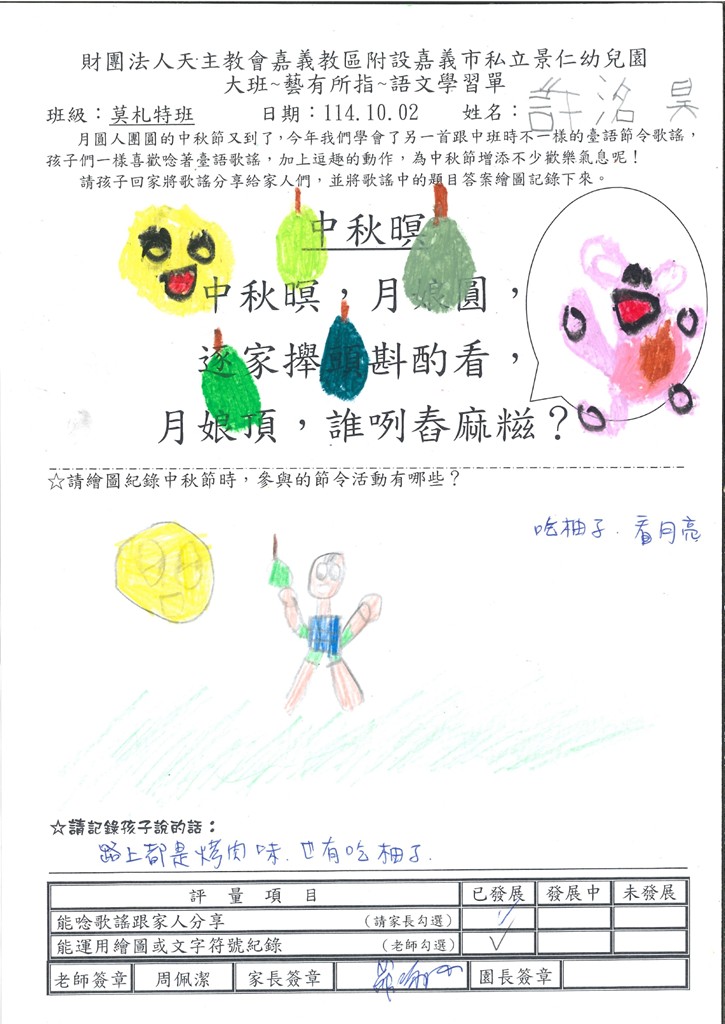 財團法人天主教會嘉義教區附設嘉義市私立景仁幼兒園
大班~藝有所指~語文學習單
班級：莫札特班 日期：114.10.02 姓名：許洺昊
月圓人團圓的中秋節又到了，今年我們學會了另一首跟中班時不一樣的臺語節令歌謠，
孩子們一樣喜歡唸著臺語歌謠，加上逗趣的動作，為中秋節增添不少歡樂氣息呢！
請孩子回家將歌謠分享給家人們，並將歌謠中的題目答案繪圖記錄下來。
中秋暝
中秋暝，月娘圓，
逐家攑頭斟酌看，
月娘頂，誰咧舂麻糍？
☆請繪圖紀錄中秋節時，參與的節令活動有哪些？
吃柚子．看月亮
☆請記錄孩子說的話：
路上都是烤肉味．也有吃柚子．
評量項目 已發展 發展中 未發展
能唸歌謠跟家人分享 （請家長勾選） ✓
能運用繪圖或文字符號紀錄 （老師勾選） ✓
老師簽章 周佩潔 家長簽章 園長簽章